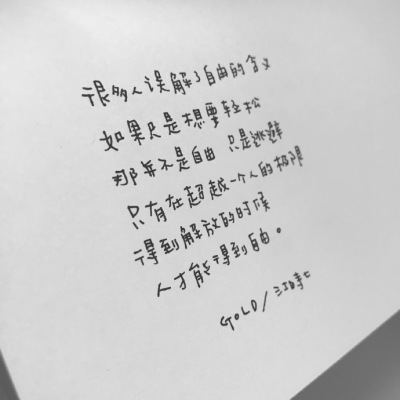 很多人误解了自由的含义
如果只是想要轻松
那并不是自由 只是逃避
只有在超越一个人的极限
得到解放的时候
人才能得到自由。
GOLD/江